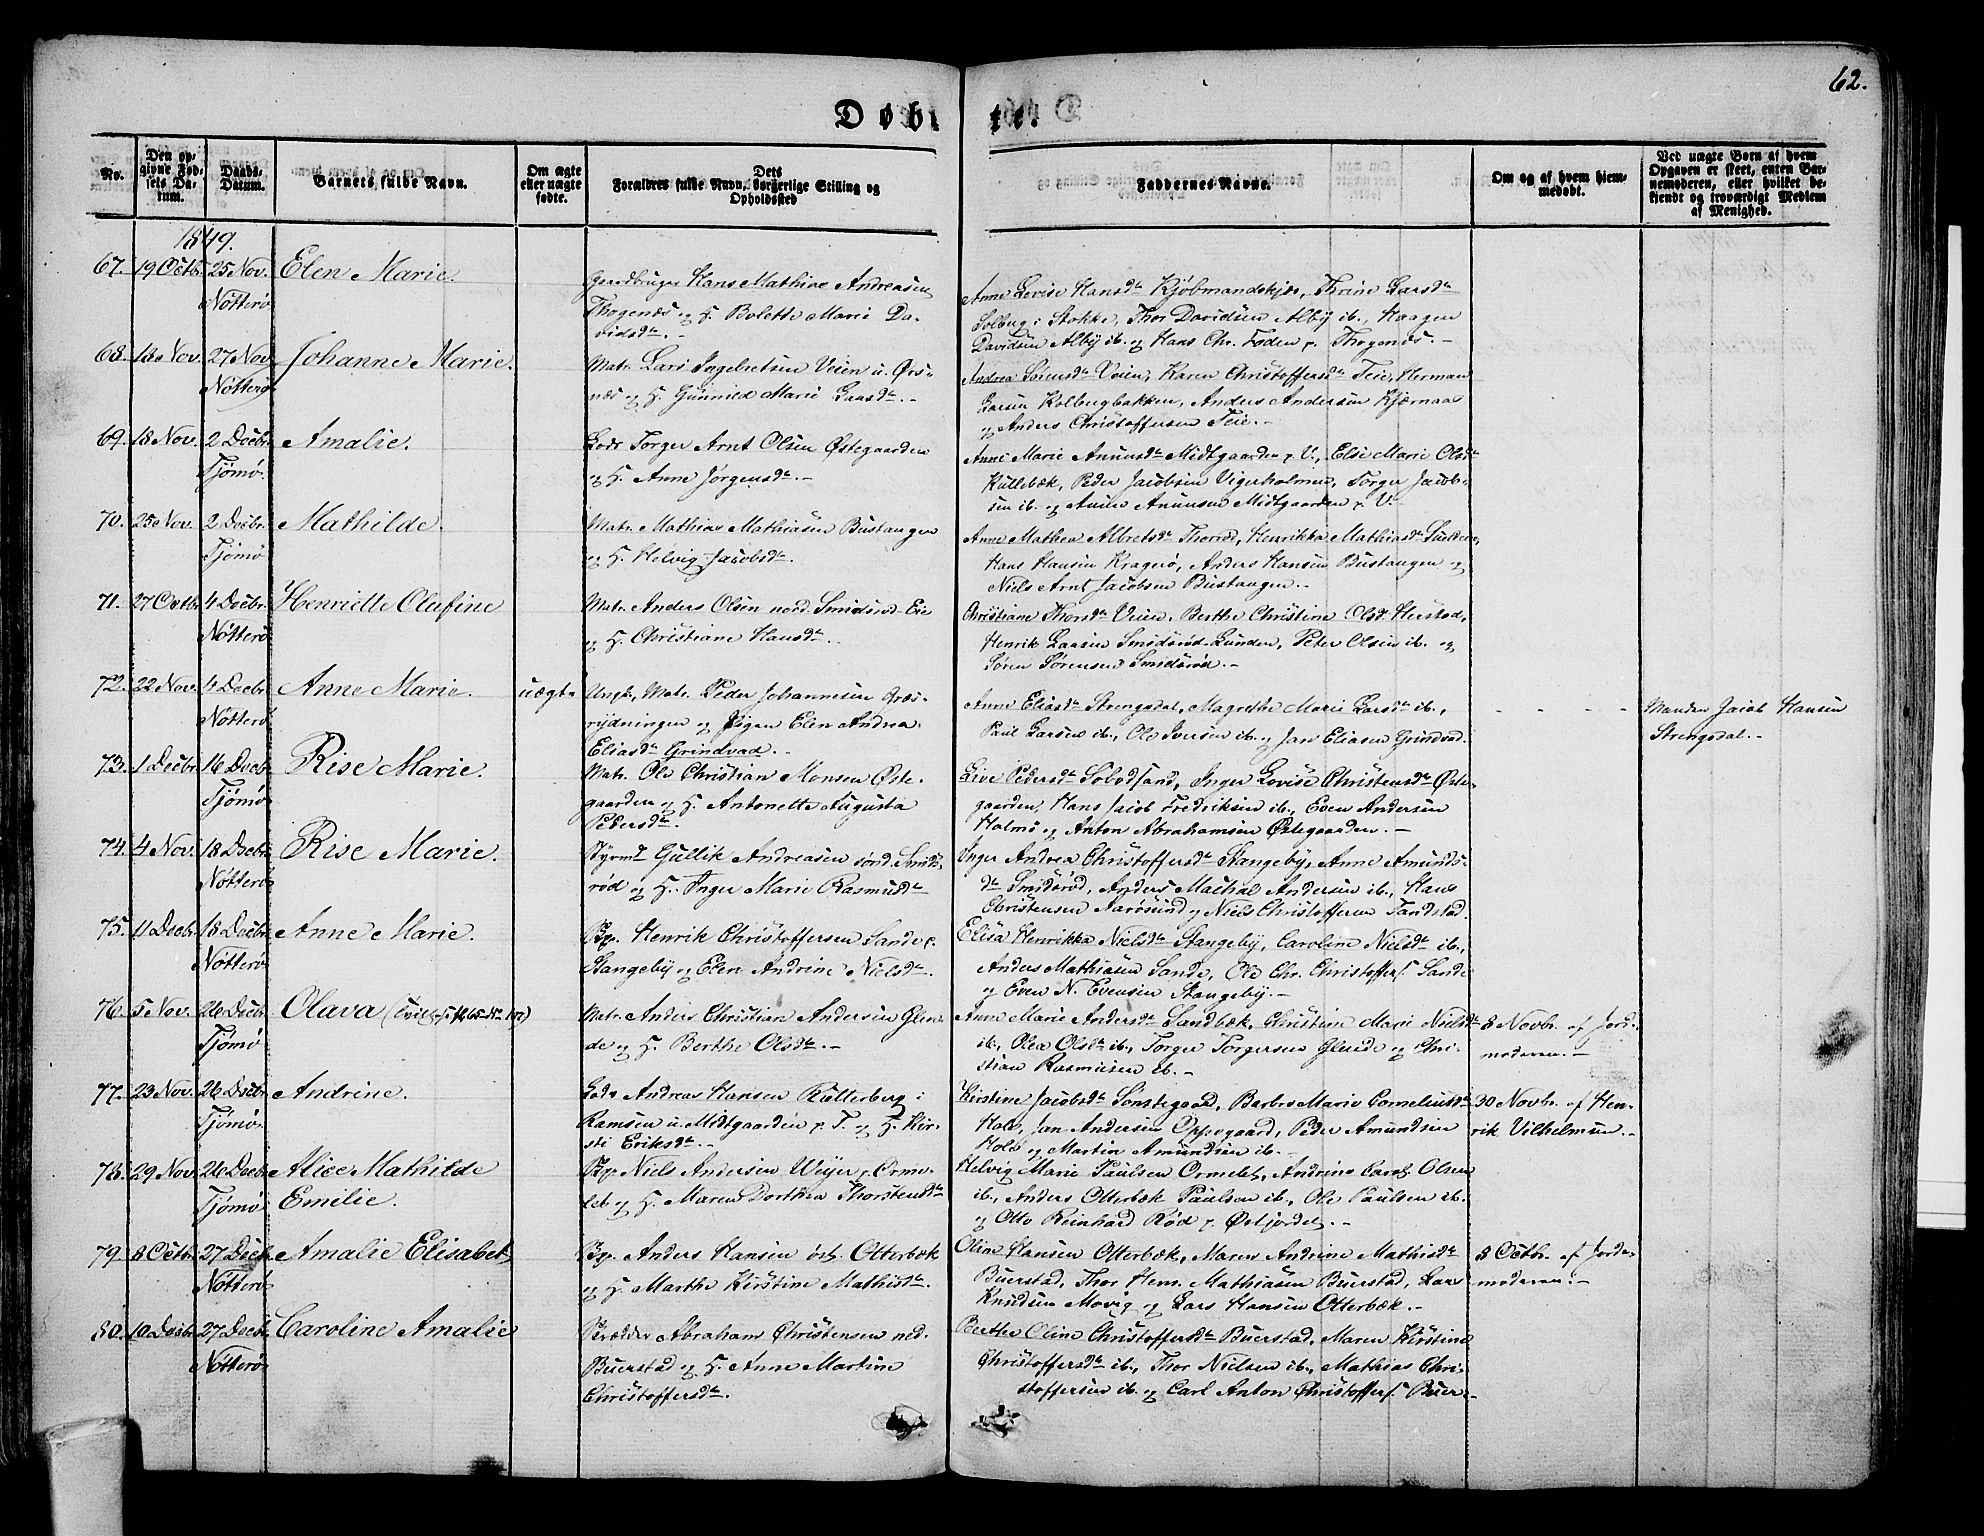 62.
Døbte.
No.
Den opgivne Fødsels Datum.
Daabs-Datum.
Barnets fulde Navn.
Om ægte eller uægte fødte.
Dets Forældres fulde Navn, borgerlige Stilling og Opholdssted
Faddernes Navne.
Om og af hvem hjemmedøbt.
Ved uægte Børn af hvem Opgaven er skeet, enten Barnemoderen, eller hvilket bekjendt og troværdigt Medlem af Menighed.
1849.
67. 19 Octbr. 25 Nov. Elen Marie.
Nøtterø
Gaardbruger Hans Mathias Andreasen
Thogenæs og H. Bolette Marie Da-
vidsdr.-
Anne Lovise Hansdr Kjøbmandskjær, Thrine Larsdr
Solberg i Stokke, Thor Davidsen Alby ib., Haagen
Davidsen Alby ib. og Hans Chr. Foden p. Thogenæs.-
68. 18 Nov. 27 Nov. Johanne Marie.
Nøtterø
Matr. Lars Ingebretsen Veien u. Ørs-
næs og H. Gunnild Marie Larsdr.-
Andrea Sørensdr Veien, Karen Christoffersdr Teie, Herman
Larsen Kolbergbakken, Anders Andersen Kjærnaas
og Anders Christoffersen Teie.-
69. 18 Nov. 2 Decbr. Amalie.
Tjømø.
Lods Torger Arnt Olsen Østegaarden
og H. Anne Jørgensdr.-
Anne Marie Anunsdr Midtgaarden p. V., Else Marie Olsdr
Kullebæk, Peder Jacobsen Vigerholmen, Torger Jacob-
sen ib. og Anun Anunsen Midtgaarden p. V.
70. 25 Nov. 2 Decbr. Mathilde.
Tjømø
Matr. Mathias Mathiasen Bustangen
og H. Helvig Jacobsdr.
Anne Mathea Albretsdr Thorød, Henrikka Mathiasdr Sundene,
Hans Hansen Kragerø, Anders Hansen Bustangen og
Niels Arnt Jacobsen Bustangen.-
71. 27 Octbr. 4 Decbr. Henriette Olufine
Nøtterø
Matr. Anders Olsen nord. Smidsrød-Eie
og H. Christiane Hansdr.-
Christiane Thorsdr Veien, Berthe Christine Olsd. Herstad,
Henrik Larsen Smidsrød-Lunden, Peter Olsen ib. og
Søren Sørensen Smidsrød.-
72. 22 Nov. 4 Decbr. Anne Marie. uægte
Nøtterø
Ungk. Matr. Peder Johannesen Græs-
rydningen og Pigen Elen Andrea
Eliasdr Grindvad.-
Anne Eliasdr Strengsdal, Magrethe Marie Larsdr ib.,
Paul Larsen ib., Ole Iversen ib. og Jan Eliasen Grindvad.
- - - -
Manden Jacob Hansen
Strengsdal.-
73. 1 Decbr. 16 Decbr. Rise Marie.
Tjømø
Matr. Ole Christian Monsen Øste-
gaarden og H. Antonette Augusta
Pedersdr.
Live Pedersdr Solvdsand, Inger Lovise Christensdr Øste-
gaarden, Hans Jacob Fredriksen ib., Even Andersen
Holmø og Anton Abrahamsen Østegaarden.-
74. 4 Nov. 18 Decbr. Rise Marie.
Nøtterø
Styrmd. Gullik Andreasen sønd. Smids-
rød og H. Inger Marie Rasmusdr
Inger Andrea Christoffersdr Stangeby, Anne Amunds-
dr Smidsrød, Anders Mathias Andersen ib., Hans
Christensen Aarøsund og Niels Christoffersen Tandstad.
75. 11 Decbr. 18 Decbr. Anne Marie.
Nøtterø
Bg. Henrik Christoffersen Sande p.
Stangeby og Elen Andrine Nielsdr.
Elisa Henrikka Nielsdr Stangeby, Caroline Nielsdr ib.,
Anders Mathiasen Sande, Ole Chr. Christoffers. Sande
og Even N. Evensen Stangeby.-
76. 5 Nov. 26 Decbr. Olava
Tjømø
Matr. Anders Christian Andersen Glen-
de og H. Berthe Olsdr.-
Anne Marie Andersdr Sandbæk, Christine Marie Nielsdr
ib., Olea Olsdr ib., Torger Torgersen Glende og Chri-
stian Rasmusen ib.-
8 Novbr. af Jord-
moderen.-
77. 23 Nov. 26 Decbr. Andrine.
Tjømø
Lods Andreas Hansen Rutterberg i
Ramsen u. Midtgaarden p. T. og H. Kir-
sti Eriksdr.-
Kirstine Jacobsdr Sønstegaard, Barbro Marie Corneliusdr
Hols, Jan Andersen Oppegaard, Peder Amundsen
Hols og Martin Amundsen ib.-
30 Novbr. af Hen-
rik Vilhelmsen.-
78. 29 Nov. 26 Decbr. Alice Mathilde
Tjømø Emilie.
Bg. Niels Andersen Weyer p. Orme-
let og H. Maren Dorthea Thorstensdr
Helvig Marie Paulsen Ormelet, Andrine Olsen
ib., Anders Otterbæk Paulsen ib., Ole Paulsen ib.
og Otto Reinhard Rød p. Østjordet.-
79. 8 Octbr. 27 Decbr. Amalie Elisabet
Nøtterø
Bg. Anders Hansen øst. Otterbæk
og H. Marthe Kirstine Mathisdr.
Oline Hansen Otterbæk, Maren Andrine Mathisdr
Buerstad, Thor Hem. Mathiasen Buerstad, Lars
Knudsen Movig og Lars Hansen Otterbæk.-
8 Octbr. af Jorde-
moderen.-
80. 10 Decbr. 27 Decbr. Caroline Amalie
Nøtterø
Skrædder Abraham Christensen ned.
Buerstad og H. Anne Martine
Christoffersdr.
Berthe Oline Christoffersdr Buerstad, Maren Kirstine
Christoffersdr ib., Thor Nielsen ib., Mathias Chri-
stoffersen ib. og Carl Anton Christoffers. Buer-